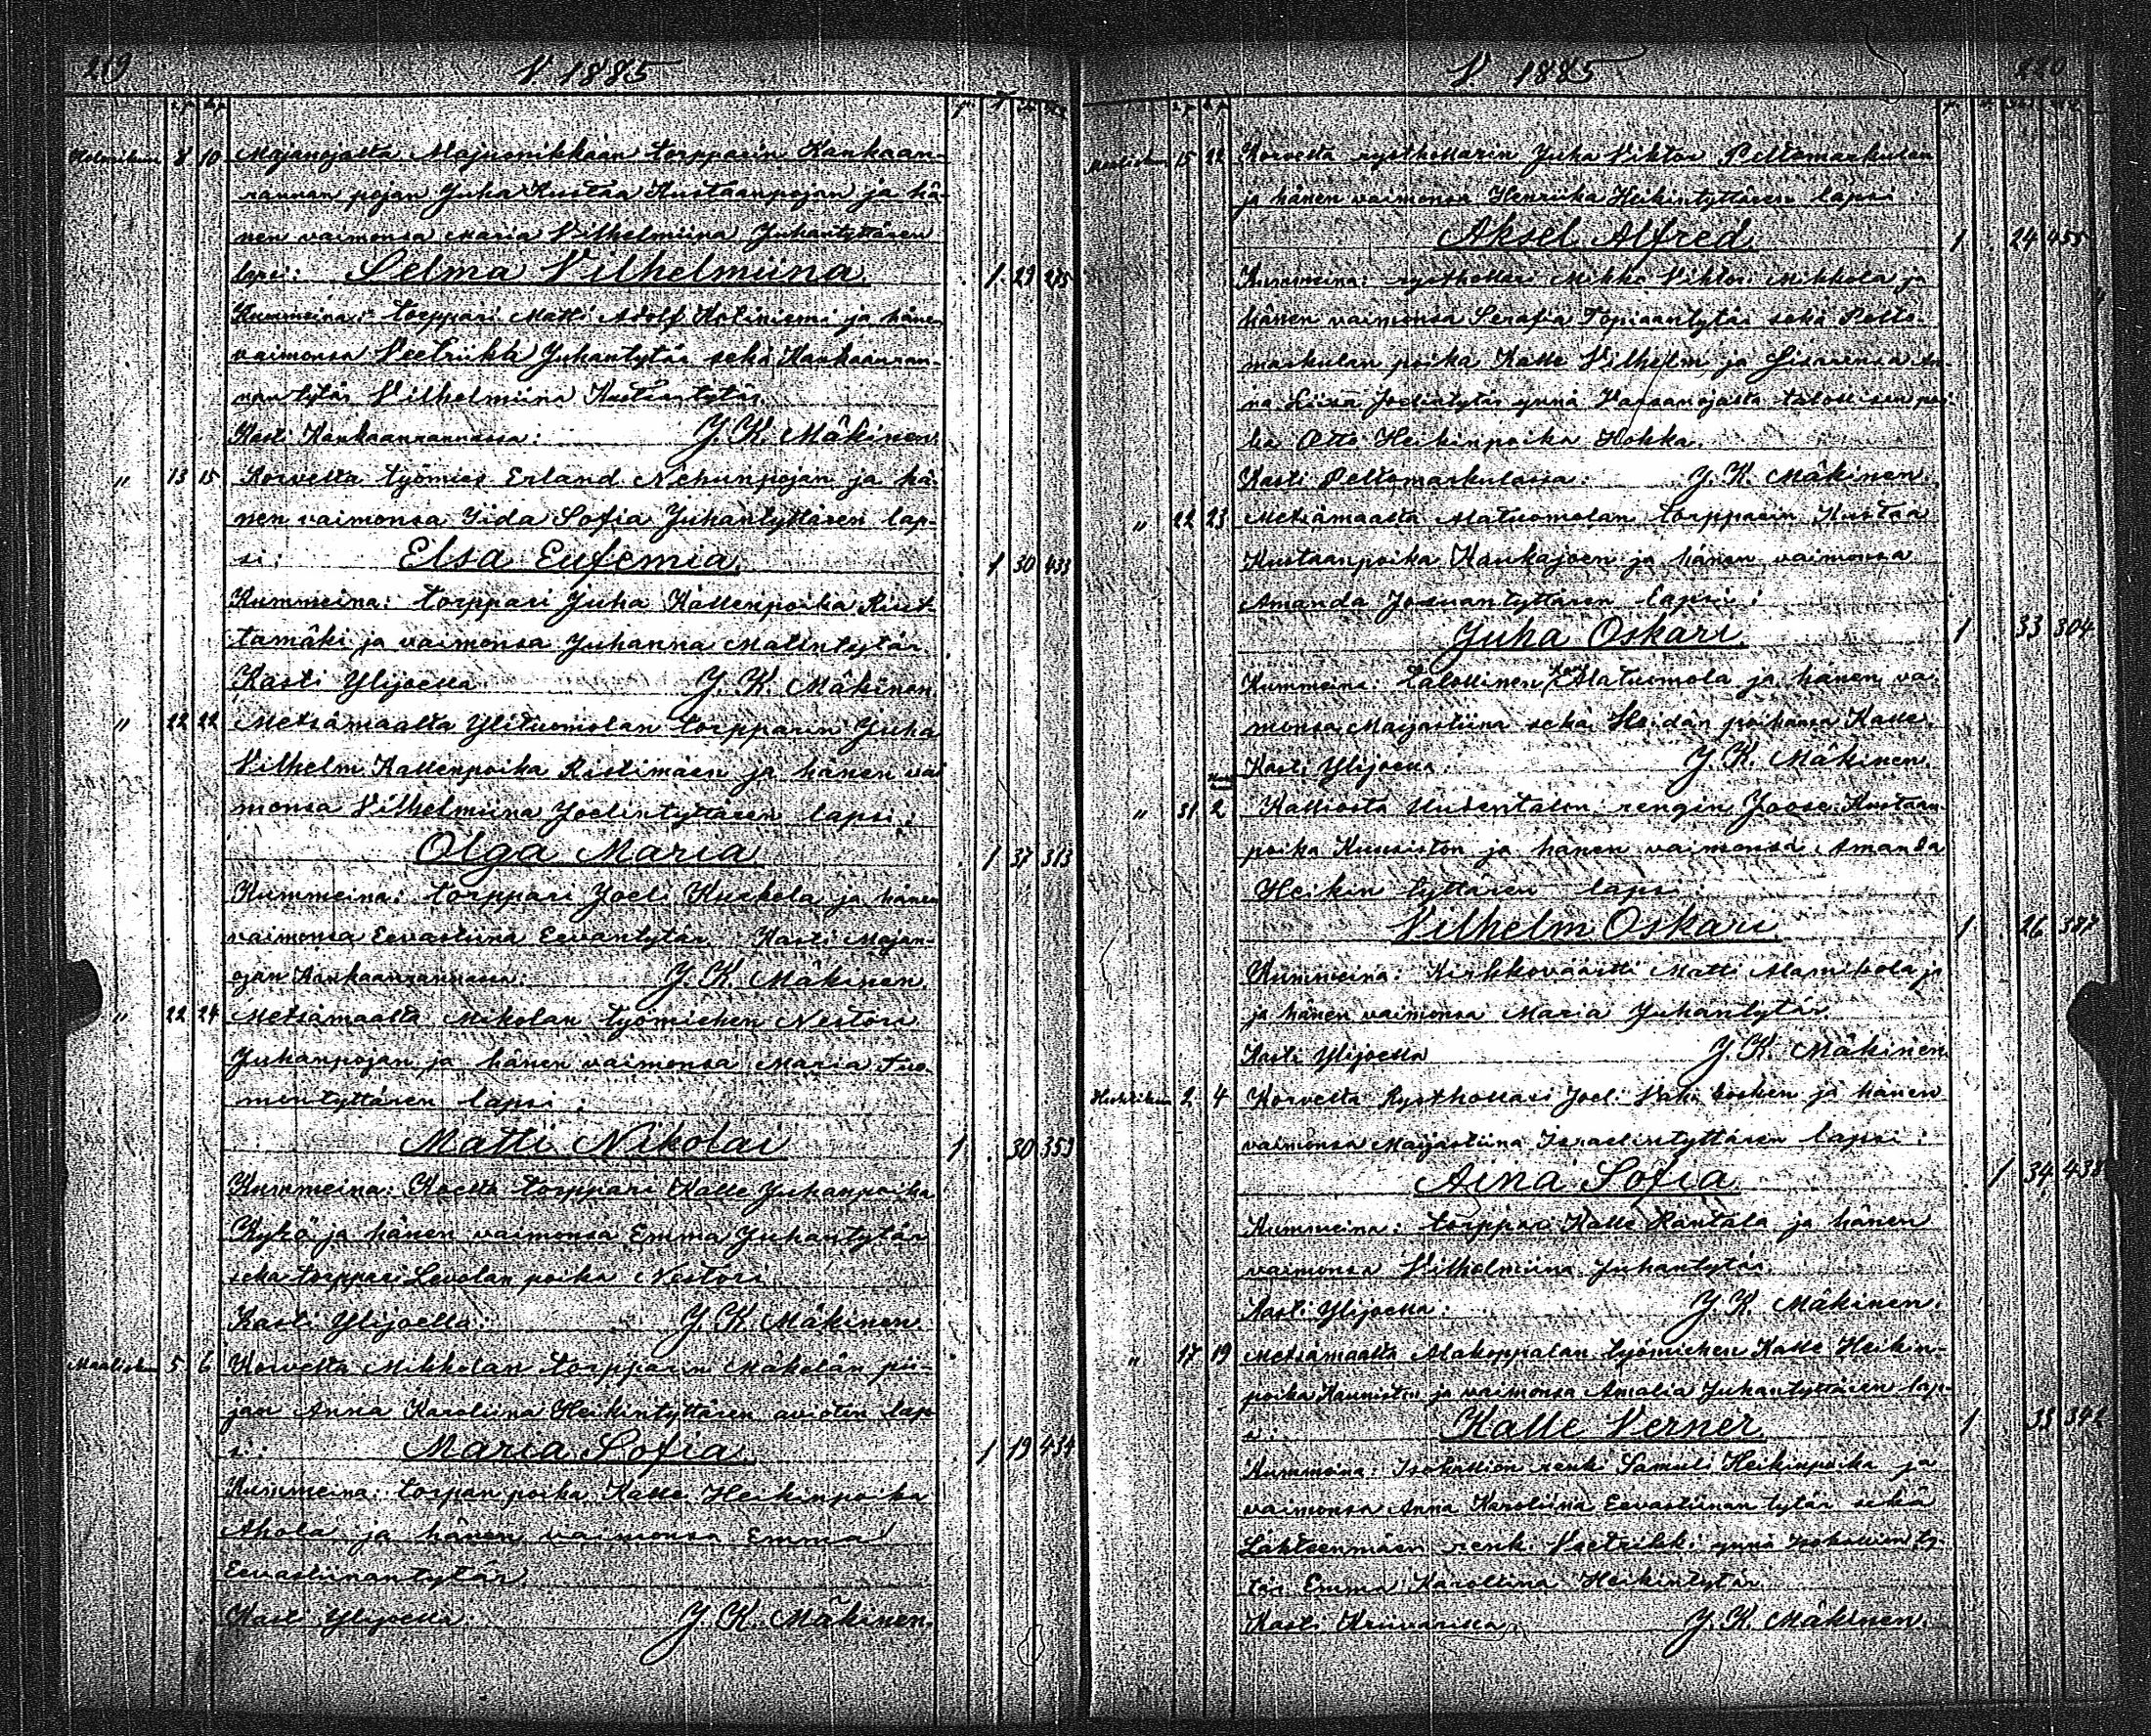 219
V 1885
8 10 Majanojalta Majuonikkaan torpparin Kankaan-
rannan pojan Juha Kustaa Kustaanpojan ja hä-
nen vaimonsa Maria Vilhelmiina Juhantyttären
lapsi: Selma Vilhelmiina. 1 29 275
Kummeina: torppari Matti Adolf Kotiniemi ja hänen
vaimonsa Veetriika Juhantytär sekä Kankaanran-
nan tytär Vilhelmiina Kustaantytär.
Kasti Kankaanrannassa: J. K. Mäkinen.
" 13 15 Korvelta työmies Erland Nehunpojan ja hä-
nen vaimonsa Iida Sofia Juhantyttären lap-
si: Elsa Eufemia. 1 30 433
Kummeina: torppari Juha Kallenpoika Riut-
tamäki ja vaimonsa Juhanna Matintytär.
Kasti Ylijoella. J. K. Mäkinen.
" 22 22 Metsämaalta Ylituomolan torpparin Juha
Vilhelm Kallenpoika Ristimäen ja hänen vai
monsa Vilhelmiina Joelintyttären lapsi:
Olga Maria 1 37 313
Kummeina: torppari Joeli Kuckela ja hänen
vaimonsa Eevastiina Eevantytär. Kasti Majan-
ojan Kankaanrannassa: J. K. Mäkinen.
" 22 24 Metsämaalta Mikolan työmiehen Nestori
Juhanpojan ja hänen vaimonsa Maria Tuo-
mentyttären lapsi:
Matti Nikolai 1 30 353
Kummeina: torppari Kalle Juhanpoika
Kyrö ja hänen vaimonsa Emma Juhantytär
sekä torppari Levolan poika Nestori
Kasti Ylijoella: J. K. Mäkinen.
Maalisku 5 6 Korvelta Mikkolan torpparin Mäkelän pii-
jan Anna Karoliina Heikintyttären aviotin lap
si: Maria Sofia. 1 19 434
Kummeina: torpan poika Kalle Heikinpoika
Ahola ja hänen vaimonsa Emma
Eevastiinantytär.
Kast Ylijoella. J. K. Mäkinen.
220
V. 1885
Maalisku 15 22 Korvelta rysthollarin Juha Viktor Peltomaskulan
ja hänen vaimonsa Henriika Heikintyttären lapsi:
Aksel Alfred. 1 24 455
Kummeina: rysthollari Mikko Viktori Mikkola ja
hänen vaimonsa Serafia Topiaantytär sekä Pelto-
maskulan poika Kalle Vilhelm ja Sisarensa An-
na Liisa Joelintytär ynnä Varsanojasta talollisen poi
ka Otto Heikinpoika Hokka.
Kasti Peltomaskulassa: J. K. Mäkinen.
" 22 23 Metsämaalta Alatuomolan torpparin Kustaa
Kustaanpoika Haukajoen ja hänen vaimonsa
Amanda Josuantyttären lapsi:
Juha Oskari. 1 33 304
Kummeina: talollinen Alatuomola ja hänen vai
monsa Maijastiina sekä Heidän poikansa Kalle.
Kasti Ylijoella: J. K. Mäkinen.
" 31 2 Kalliosta Uudentalon rengin Joose Kustaan-
poika Kuusiston ja hänen vaimonsa Amanda
Heikin tyttären lapsi:
Vilhelm Oskari. 1 26 387
Kummeina: Kirkkoväärtti Matti Alamikola ja
ja hänen vaimonsa Maria Juhantytär
Kasti Ylijoella J. K. Mäkinen.
Huhtikuu 2 4 Korvelta Rysthollari Joeli Vähä kosken ja hänen
vaimonsa Maijastiina Israelintyttären lapsi:
Aina Sofia. 1 34 438
Kummeina: torppari Kalle Rantala ja hänen
vaimonsa Vilhelmiina Juhantytär.
Kasti Ylijoella: J. K. Mäkinen.
" 17 19 Metsämaalta Alakoppalan työmiehen Kalle Heikin-
poika Kauniston ja vaimonsa Amalia Juhantyttären lap-
si: Kalle Verner 1 33 342
Kummeina: Isokallion renki Samuli Heikinpoika ja
vaimonsa Anna Karoliina Eevastiinan tytär sekä
Lähteenmäen renki Veetrikki ynnä Isokallion ty-
tär Emma Karoliina Heikintytär.
Kasti J. K. Mäkinen.